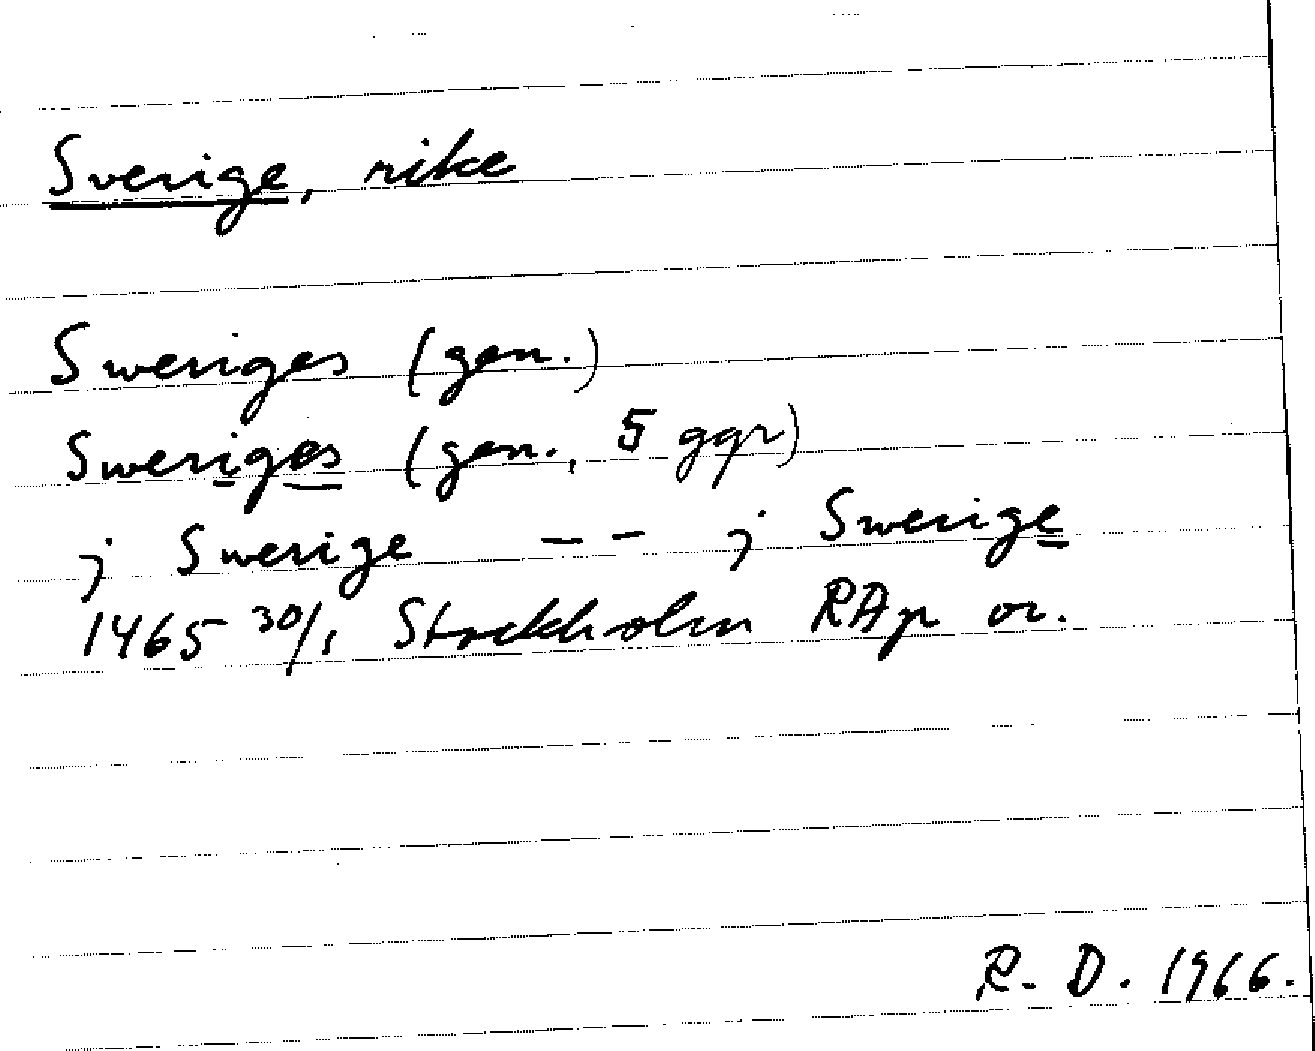 Sverige, rike
Sweriges (gen.)
Sweriges (gen., 5 ggr)
j Swerige -- j Swerige
1465 30/1 Stockholm RAp or.
R. D. 1966.